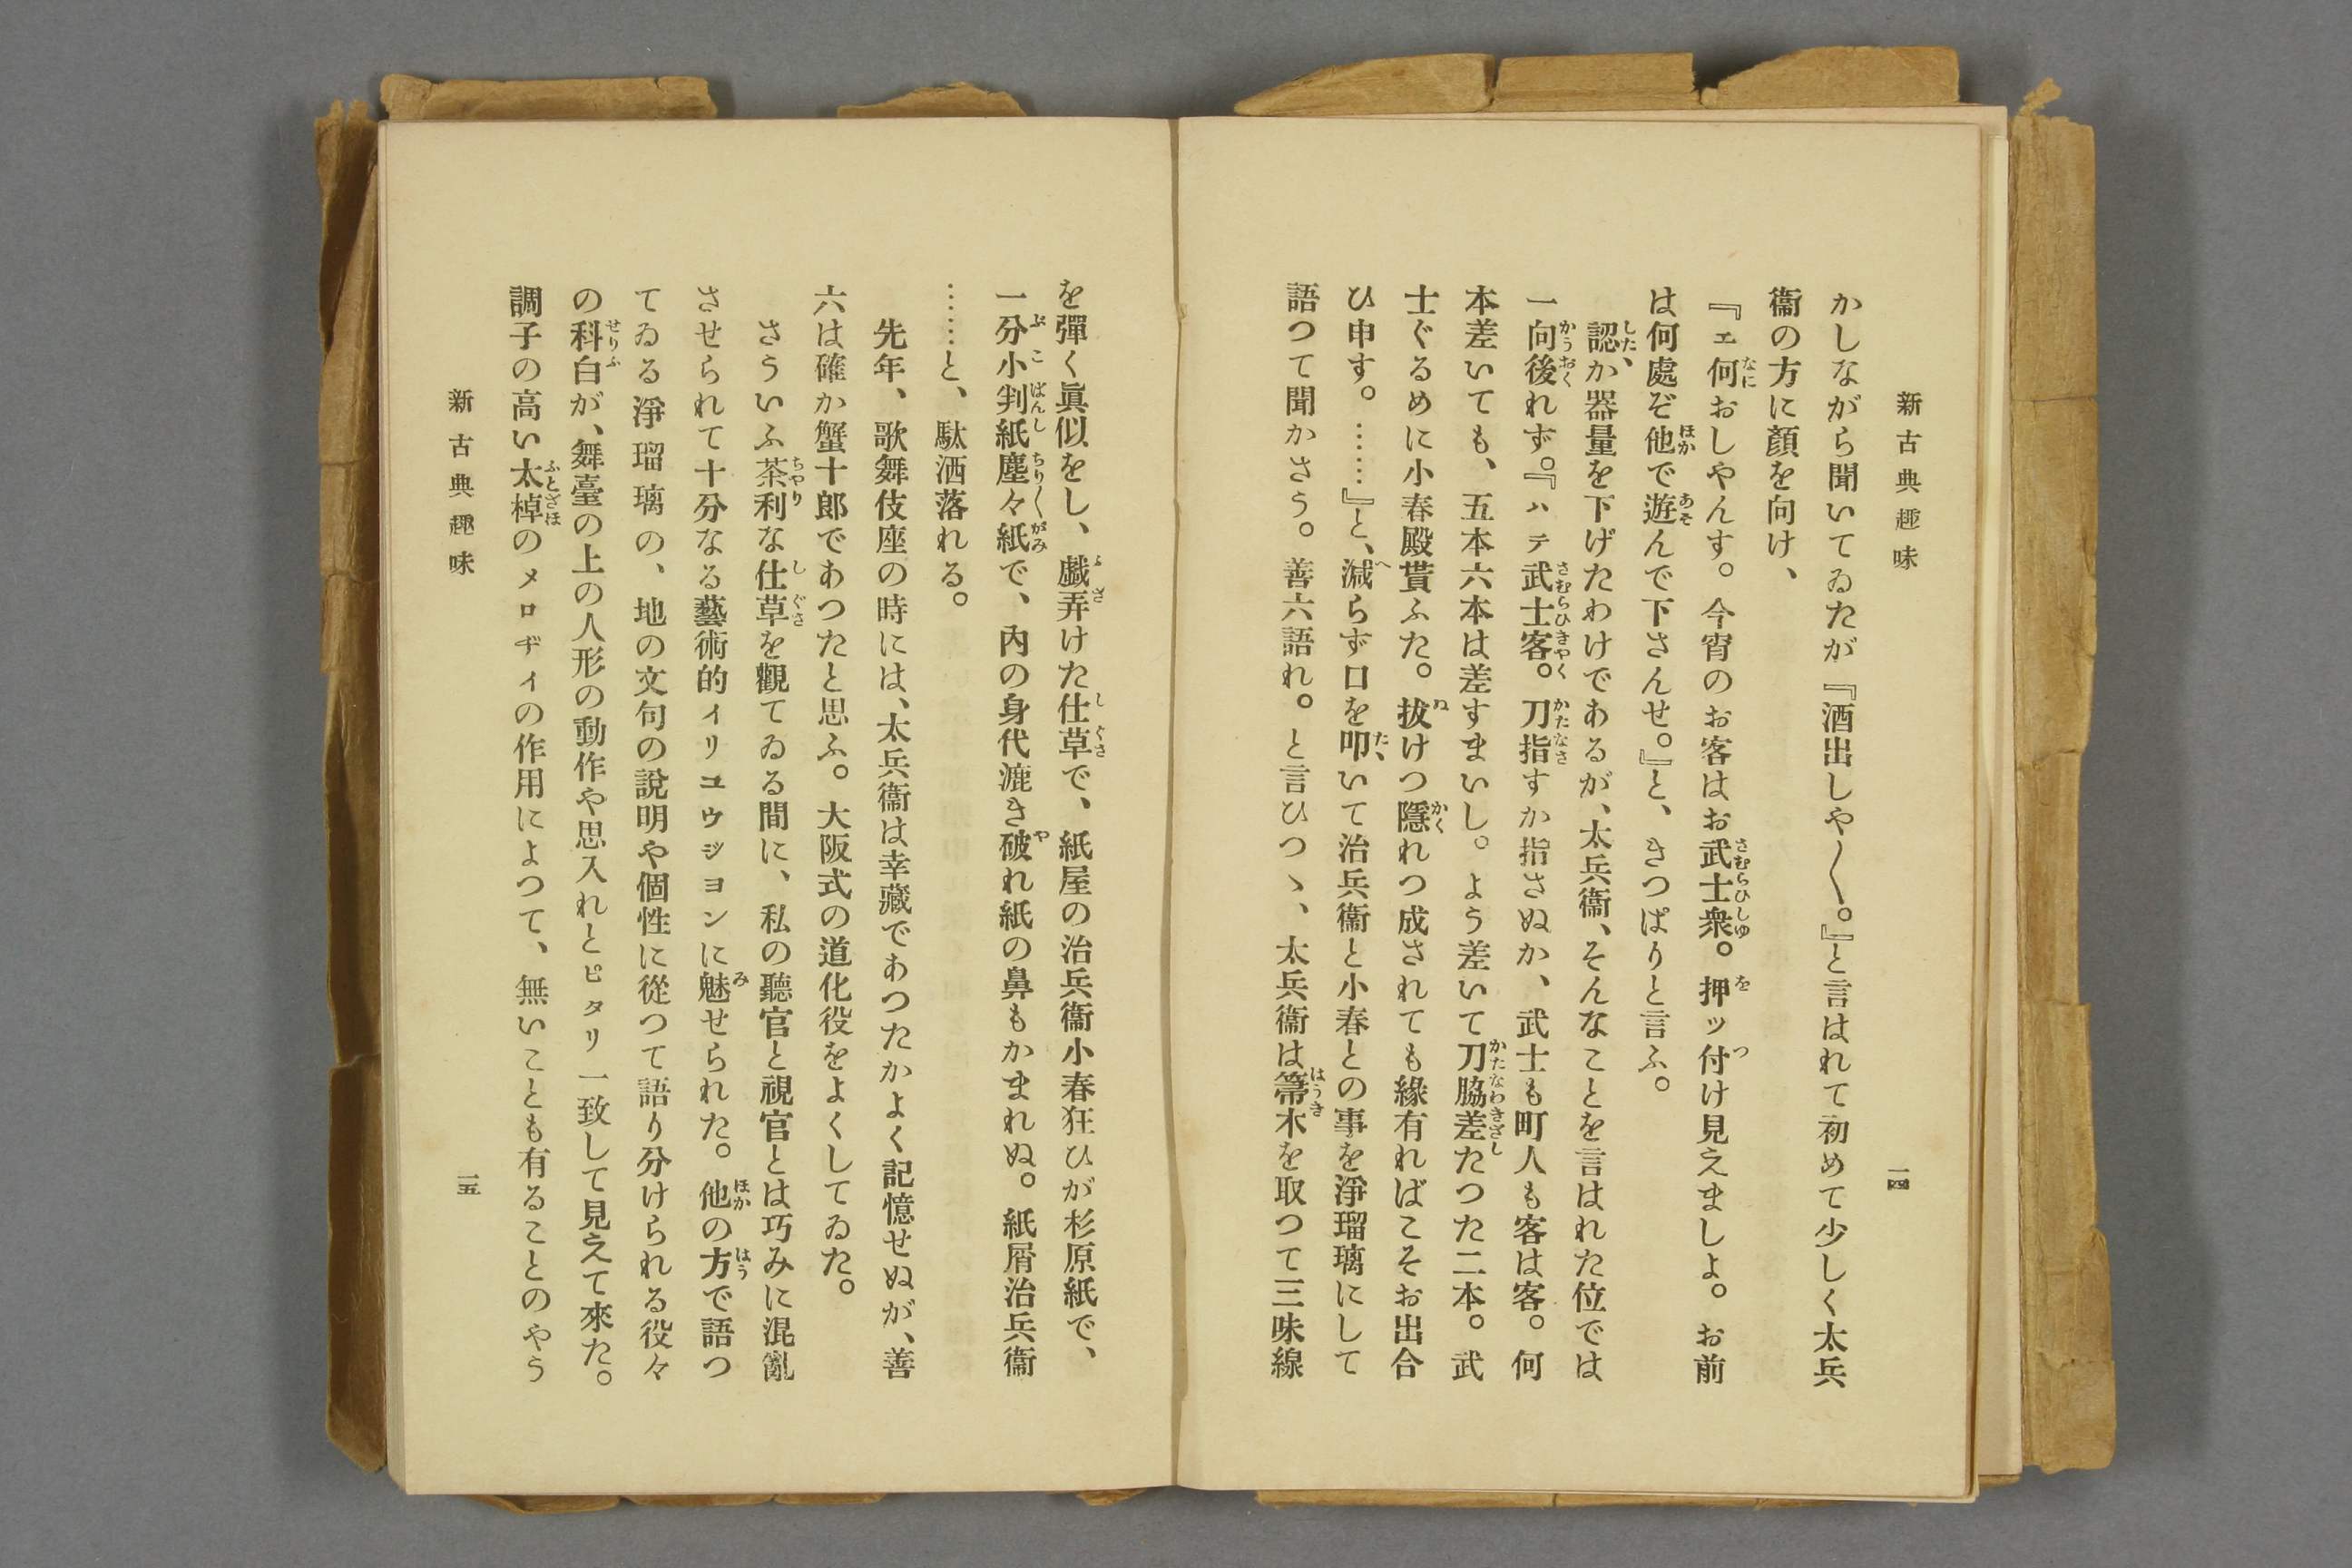 新古典趣味
一四
かしながら聞いてゐたが『酒出しや〱。』と言はれて初めて少しく太兵
衞の方に顏を向け、
『エ何おしやんす。今宵のお客はお武士衆。押ッ付け見えましよ。お前
は何處ぞ他で遊んで下さんせ。』と、きつぱりと言ふ。
認か器量を下げたわけであるが、太兵衞、そんなことを言はれた位では
一向後れず。『ハテ武士客。刀指すか指さぬか、武士も町人も客は客。何
本差いても、五本六本は差すまいし。よう差いて刀脇差たつた二本。武
士ぐるめに小春殿貰ふた。拔けつ隱れつ成されても緣有ればこそお出合
ひ申す。……』と、減らず口を叩いて治兵衞と小春との事を淨瑠璃にして
語つて聞かさう。善六語れ。と言ひつゝ、太兵衞は箒木を取つて三味線
を彈く眞似をし、戲弄けた仕草で、紙屋の治兵衞小春狂ひが杉原紙で、
一分小判紙塵々紙で、內の身代漉き破れ紙の鼻もかまれぬ。紙屑治兵衞
……と、駄洒落れる。
先年、歌舞伎座の時には、太兵衞は幸藏であつたかよく記憶せぬが、善
六は確か蟹十郎であつたと思ふ。大阪式の道化役をよくしてゐた。
さういふ茶利な仕草を觀てゐる間に、私の聽官と視官とは巧みに混亂
させられて十分なる藝術的イリユウジヨンに魅せられた。他の方で語つ
てゐる淨瑠璃の、地の文句の說明や個性に從つて語り分けられる役々
の科白が、舞臺の上の人形の動作や思入れとピタリ一致して見えて來た。
調子の高い太棹のメロヂイの作用によつて、無いことも有ることのやう
新古典趣味
一五